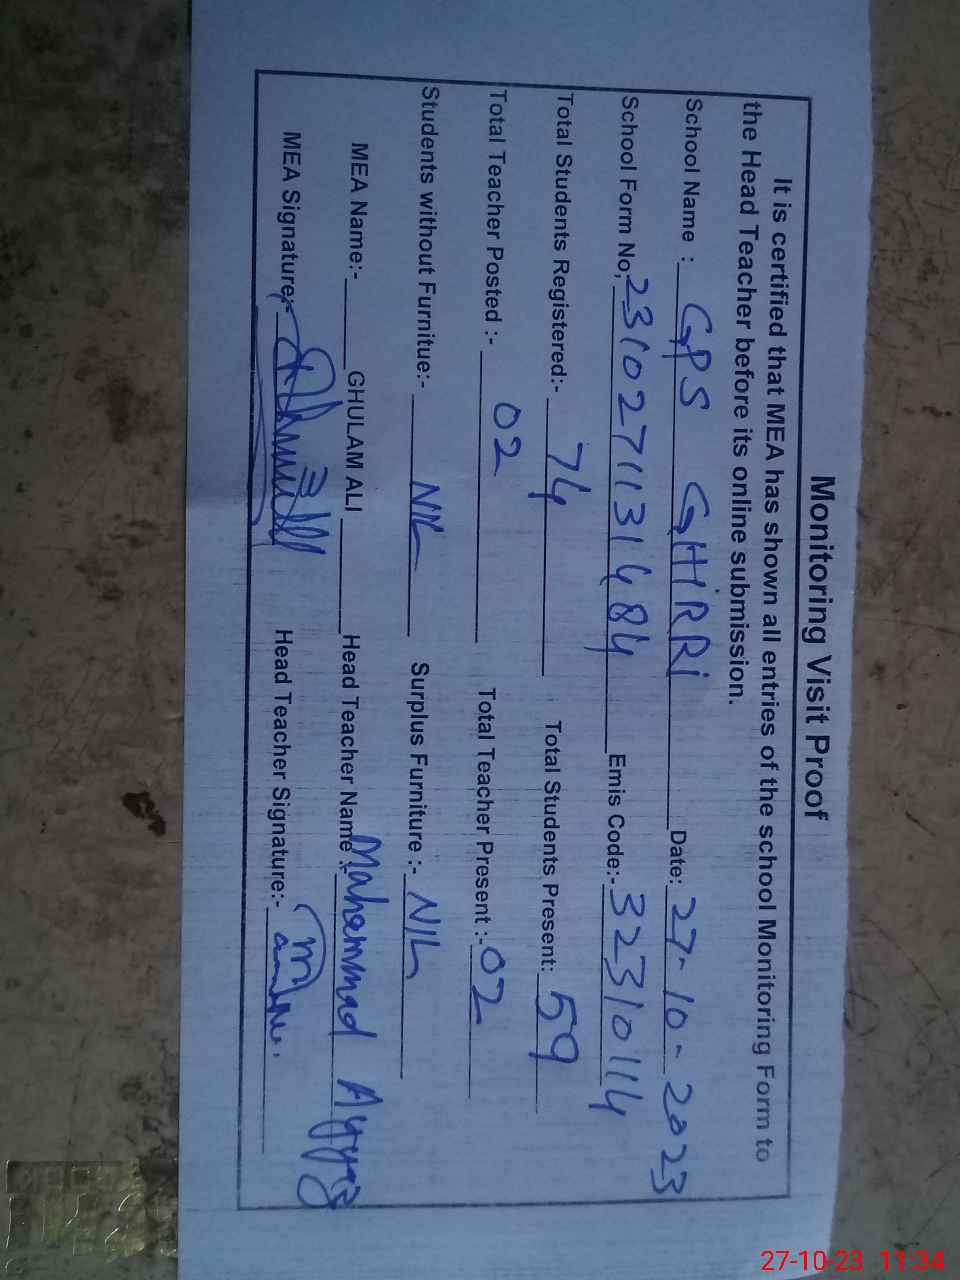 Monitoring Visit Proof
It is certified that MEA has shown all entries of the school Monitoring Form to
the Head Teacher before its online submission.
School Name : GPS GHIRRI Date: 27-10-2023
School Form No, 2310271131484 Emis Code:- 32310114
Total Students Registered:- 74 Total Students Present: 59
Total Teacher Posted :- 02 Total Teacher Present :- 02
Students without Furnitue:- NIL Surplus Furniture :- NIL
MEA Name:- GHULAM ALI Head Teacher Name :- Mahammad Ayyaz
MEA Signature:- Head Teacher Signature:-
27-10-23 11:34